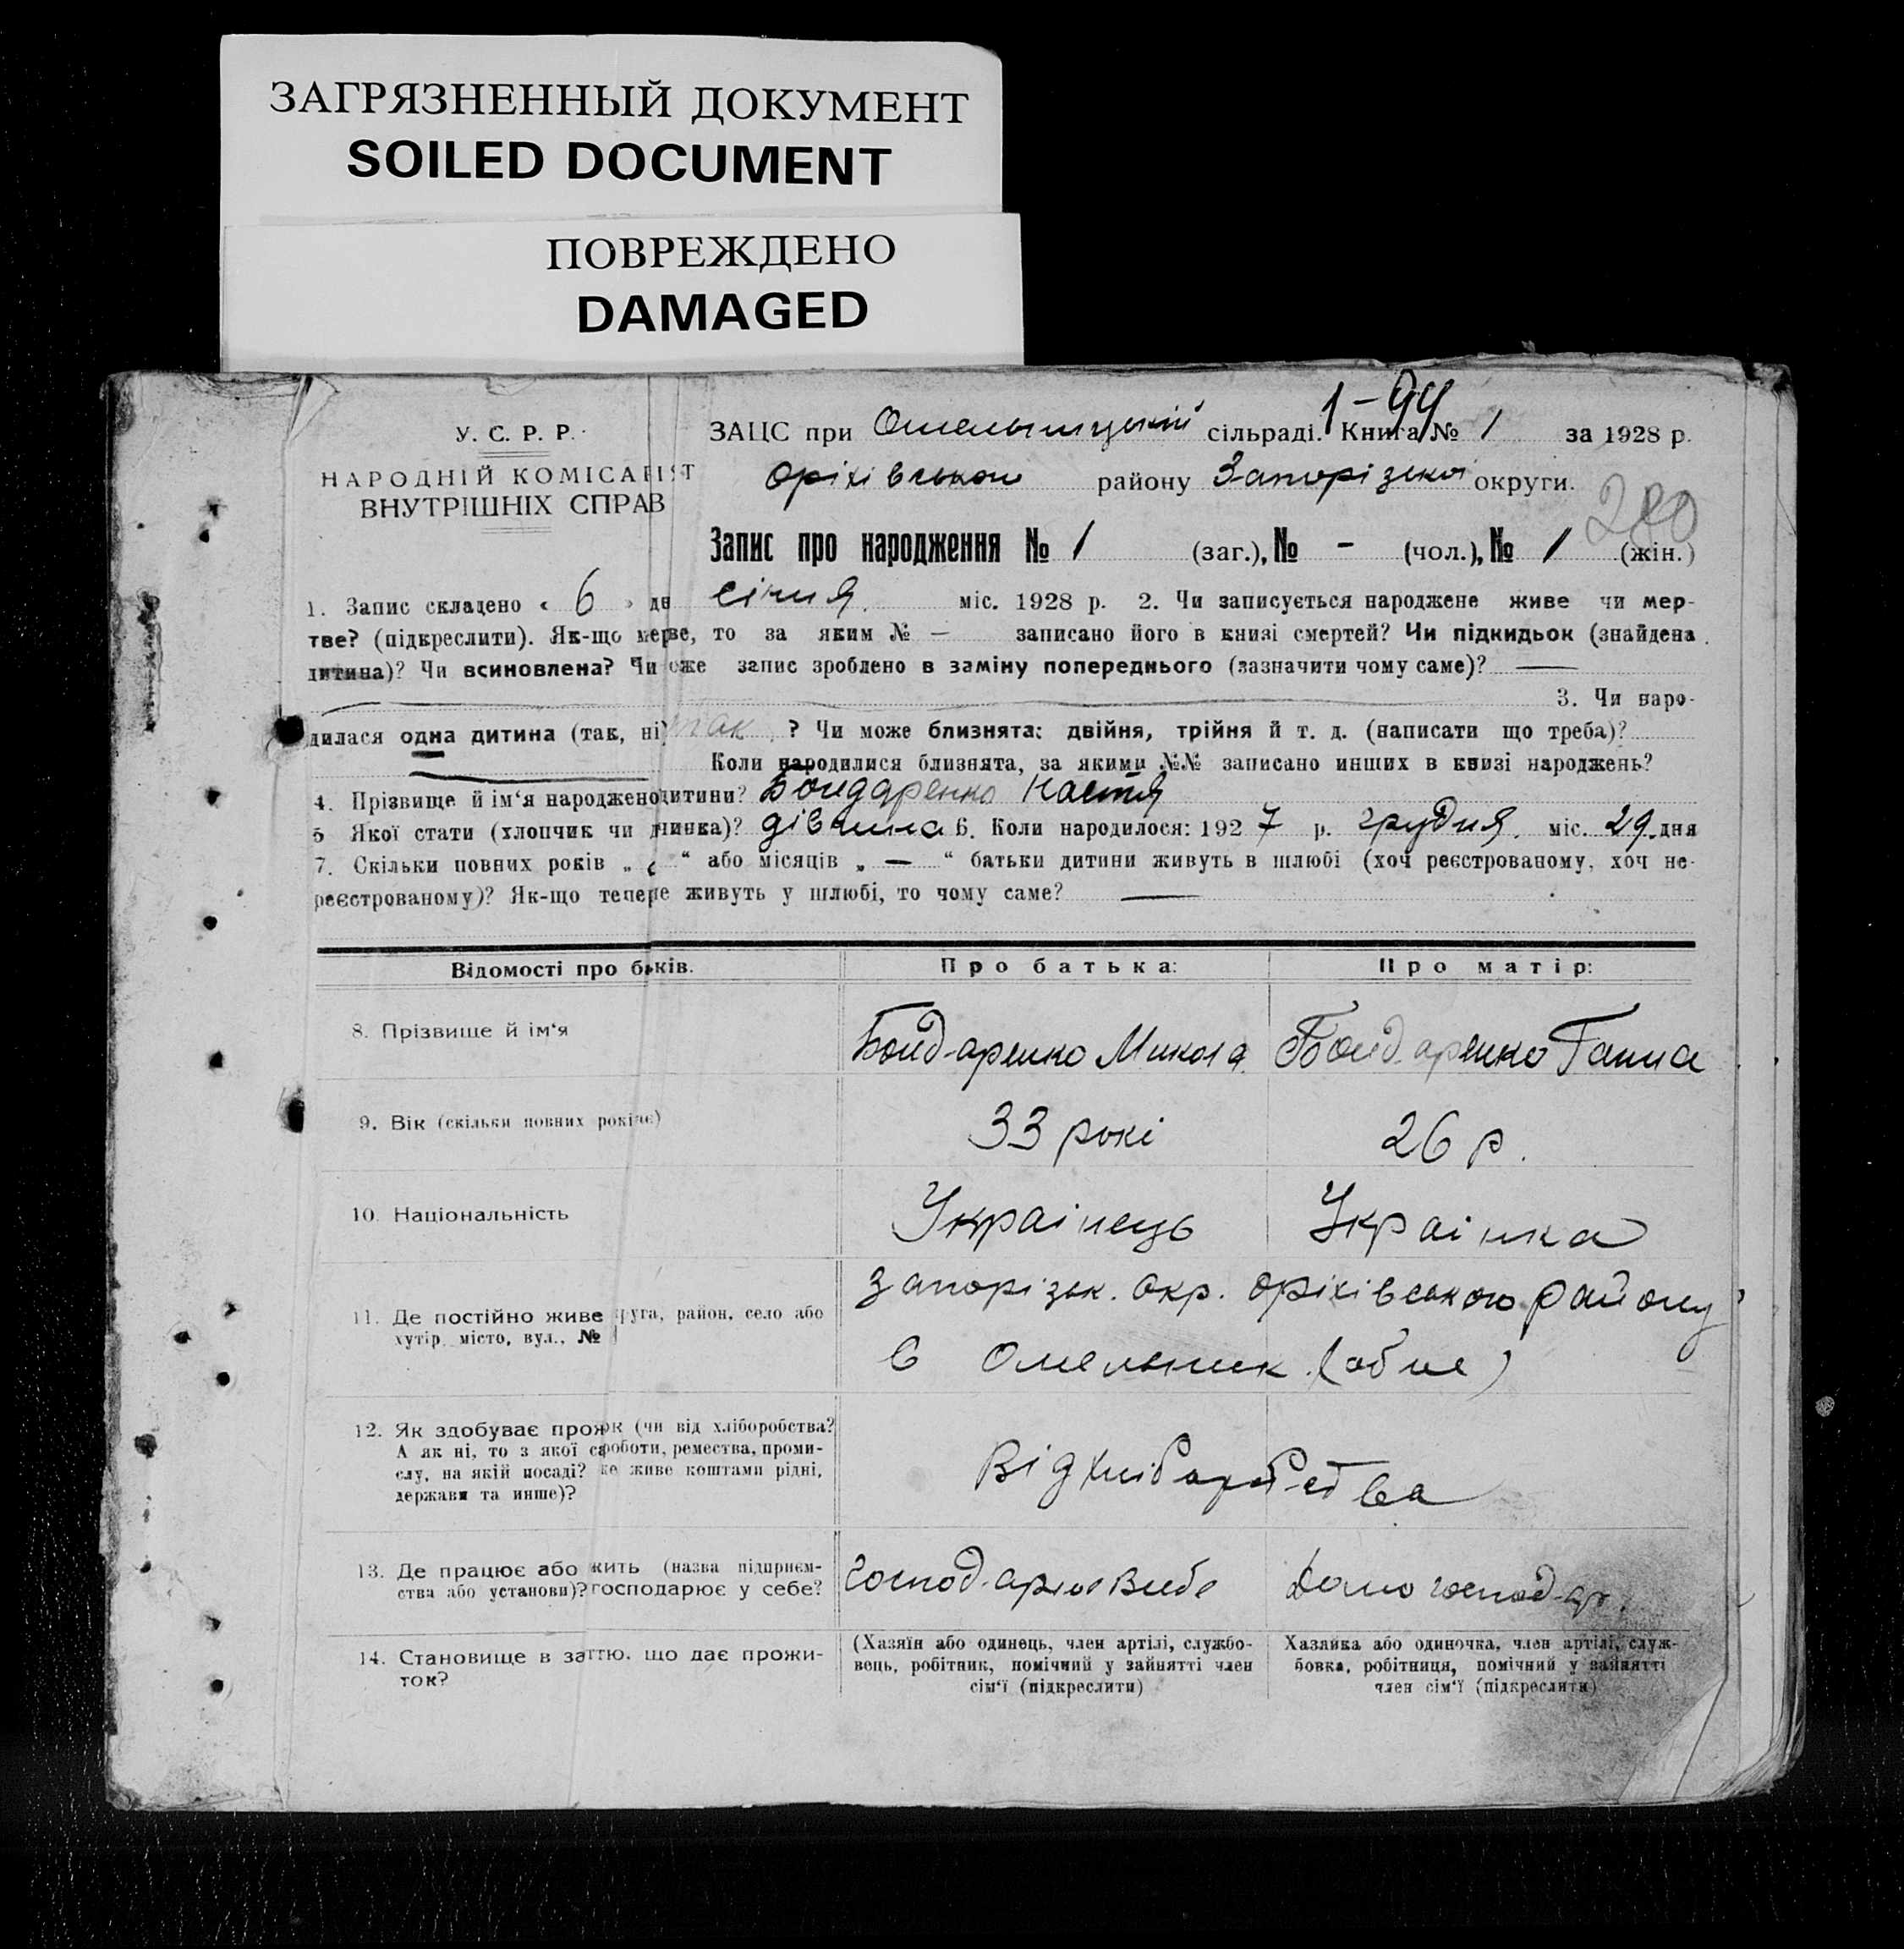 ЗАГРЯЗНЕННЫЙ ДОКУМЕНТ
SOILED DOCUMENT
ПОВРЕЖДЕНО
DAMAGED
1-94
У. С. Р. Р.
НАРОДНІЙ КОМІСАРІЯТ
ВНУТРІШНІХ СПРАВ
ЗАЦС при Омельницькій сільраді. Книга № 1 за 1928 р.
Оріхівського району Запорізької округи.
280
Запис про народження № 1 (заг.), № - (чол.), № 1 (жін.)
1. Запис складено « 6 » дн січня міс. 1928 р. 2. Чи записується народжене живе чи мер-
тве? (підкреслити). Як-що мерве, то за яким № — записано його в книзі смертей? Чи підкидьок (знайдена
дитина)? Чи всиновлена? Чи оже запис зроблено в заміну попереднього (зазначити чому саме)? —
3. Чи наро-
дилася одна дитина (так, ні) так ? Чи може близнята: двійня, трійня й т. д. (написати що треба)?
Коли народилися близнята, за якими №№ записано инших в книзі народжень?
4. Прізвище й ім'я народженодитини? Бондаренко Настя
5 Якої стати (хлопчик чи дчинка)? дівчина 6. Коли народилося: 1927 р. грудня міс. 29 дня
7. Скільки повних років „ “ або місяців „ — “ батьки дитини живуть в шлюбі (хоч реєстрованому, хоч не-
реєстрованому)? Як-що тепере живуть у шлюбі, то чому саме? —
Відомості про баків. Про батька: Про матір:
8. Прізвище й ім'я Бондаренко Микола Бондаренко Ганна
9. Вік (скільки повних рокіає) 33 рокі 26 р.
10. Національність Українець Українка
11. Де постійно живе руга, район, село або Запорізьк. окр. Оріхівського району
хутір, місто, вул., № с Омельник (обоє)
12. Як здобуває прожок (чи від хліборобства?
А як ні, то з якої сароботи, ремества, проми-
слу, на якій посаді? же живе коштами рідні,
держави та инше)? Від хліборобства
13. Де працює або жить (назва підприєм- Господарює в себе Домогосподар.
ства або установи)? господарює у себе?
14. Становище в заттю, що дає прожи-
ток?
(Хазяїн або одинець, член артілі, службо-
вець, робітник, помічний у зайнятті член
сім'ї (підкреслити)
Хазяйка або одиночка, член артілі, служ-
бовка, робітниця, помічний у зайнятті
член сім'ї (підкреслити)